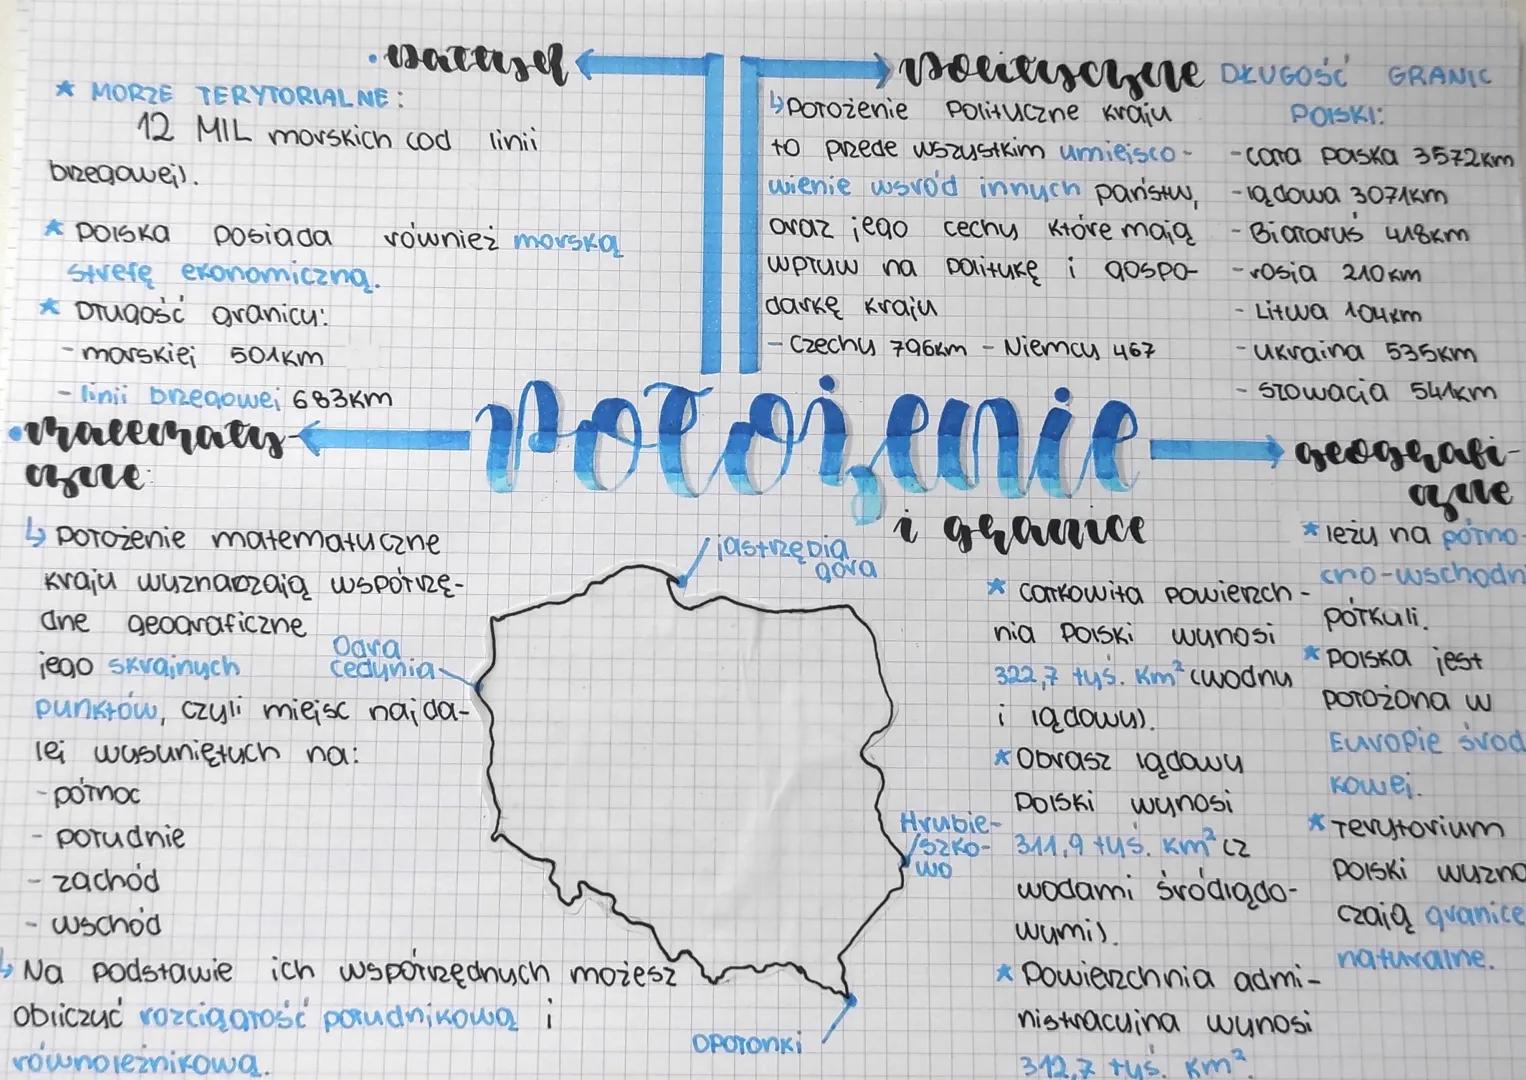 ★ MORZE TERYTORIALNE:
12 MIL morskich (od linii
brzegowej).
★ Polska posiada również morską
strefę ekonomiczną.
★ Długość granicy:
- morskiej 501km
- linii brzegowej 683km
polityczne
↳ Położenie polityczne kraju
to przede wszystkim umiejsco-
wienie wśród innych państw,
oraz jego cechy które mają
wpływ na politykę i gospo-
darkę kraju
- Czechy 796km - Niemcy 467
DŁUGOŚĆ GRANIC
POLSKI:
- cała polska 3572km
- lądowa 3071km
- Białaruś 418km
- rosja 210km
- Litwa 104km
- ukraina 535km
- słowacja 541km
Położenie
i granice
• matematy-
czne:
↳ Położenie matematyczne
kraju wyznaczają współrzę-
dne geograficzne
jego skrajnych
punktów, czyli miejsc najda-
lej wysuniętych na:
- północ
- południe
- zachód
- wschód
↳ Na podstawie ich współrzędnych możesz
obliczyć rozciągłość południkową i
równoleżnikową.
jastrzębia
góra
Odra
cedynia
Hrubie-
szko-
wo
opołonki
★ całkowita powierzch-
nia Polski wynosi
322,7 tyś. km² (wodny
i lądowy).
★ Obrasz lądowy
Polski wynosi
311,9 tyś. km² (z
wodami śródlądo-
wymi).
★ Powierzchnia admi-
nistracyjna wynosi
312,7 tyś. km².
geografi-
czne
★ leży na półno-
cno-wschodni
półkuli.
★ Polska jest
położona w
Europie środ
kowej.
★ Terytorium
Polski wyzna
czają granice
naturalne.